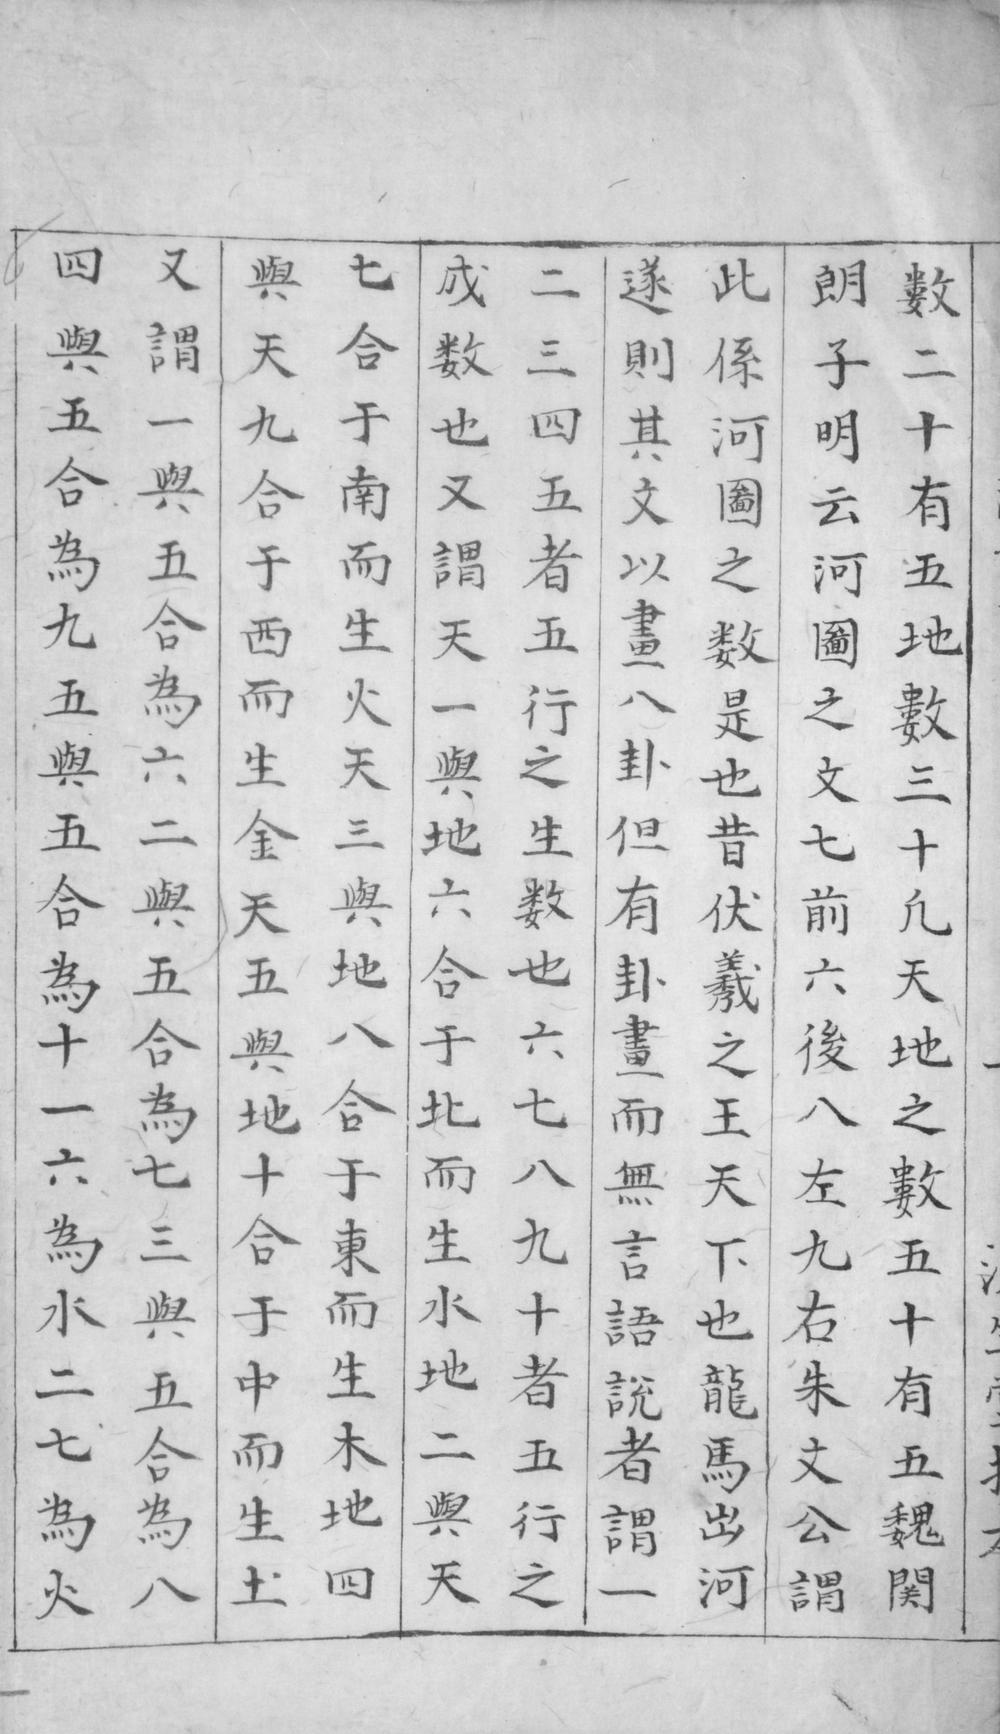 數二十有五地數三十凢天地之數五十有五魏関
朗子明云河圗之文七前六後八左九右朱文公謂
此係河圗之数是也昔伏羲之王天下也龍馬出河
遂則其文以畫八卦但有卦畫而無言語説者謂一
二三四五者五行之生数也六七八九十者五行之
成数也又謂天一與地六合于北而生水地二與天
七合于南而生火天三與地八合于東而生木地四
與天九合于西而生金天五與地十合于中而生土
又謂一與五合為六二與五合為七三與五合為八
四與五合為九五與五合為十一六為水二七為火